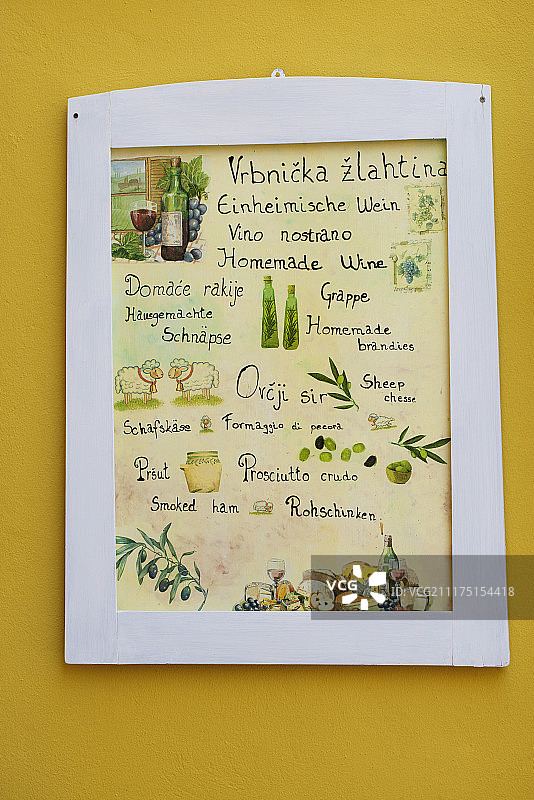 Vrbnička žlahtina
Einheimische Wein
Vino nostrano
Homemade Wine
Domaće rakije
Grappe
Hausgemachte
Schnäpse
Homemade
brandies
Ovčji sir
Sheep
chesse
Schafskäse
Formaggio di pecora
Pršut
Prosciutto crudo
Smoked ham
Rohschinken
VCG
ID: VCG211175154418